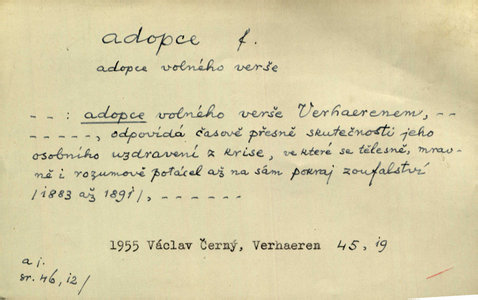 adopce f.
adopce volného verše
– – : adopce volného verše Verhaerenem, – –
– – – – –, odpovídá časově přesně skutečnosti jeho
osobního uzdravení z krise, ve které se tělesně, mrav-
ně i rozumově potácel až na sám pokraj zoufalství
/1883 až 1891/, – – – – – –
1955 Václav Černý, Verhaeren 45, 19
a j.
sr. 46, 12/